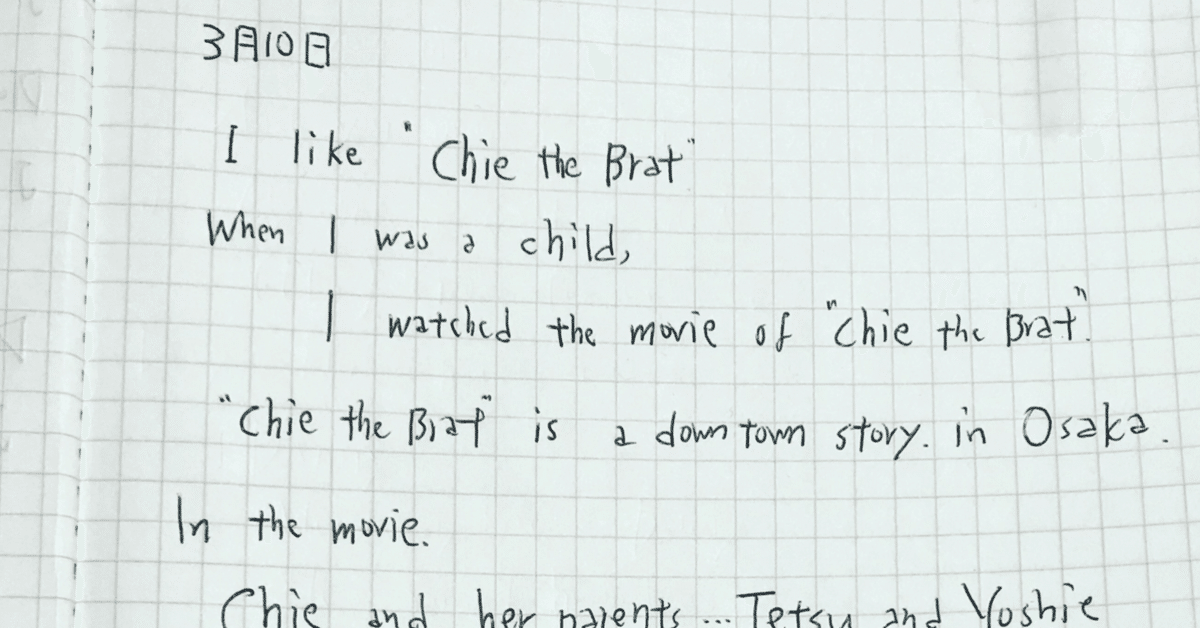 3月10日
I like "Chie the Brat"
When I was a child,
I watched the movie of "Chie the Brat".
"Chie the Brat" is a down town story. in Osaka.
In the movie.
Chie and her parents... Tetsu and Yoshie